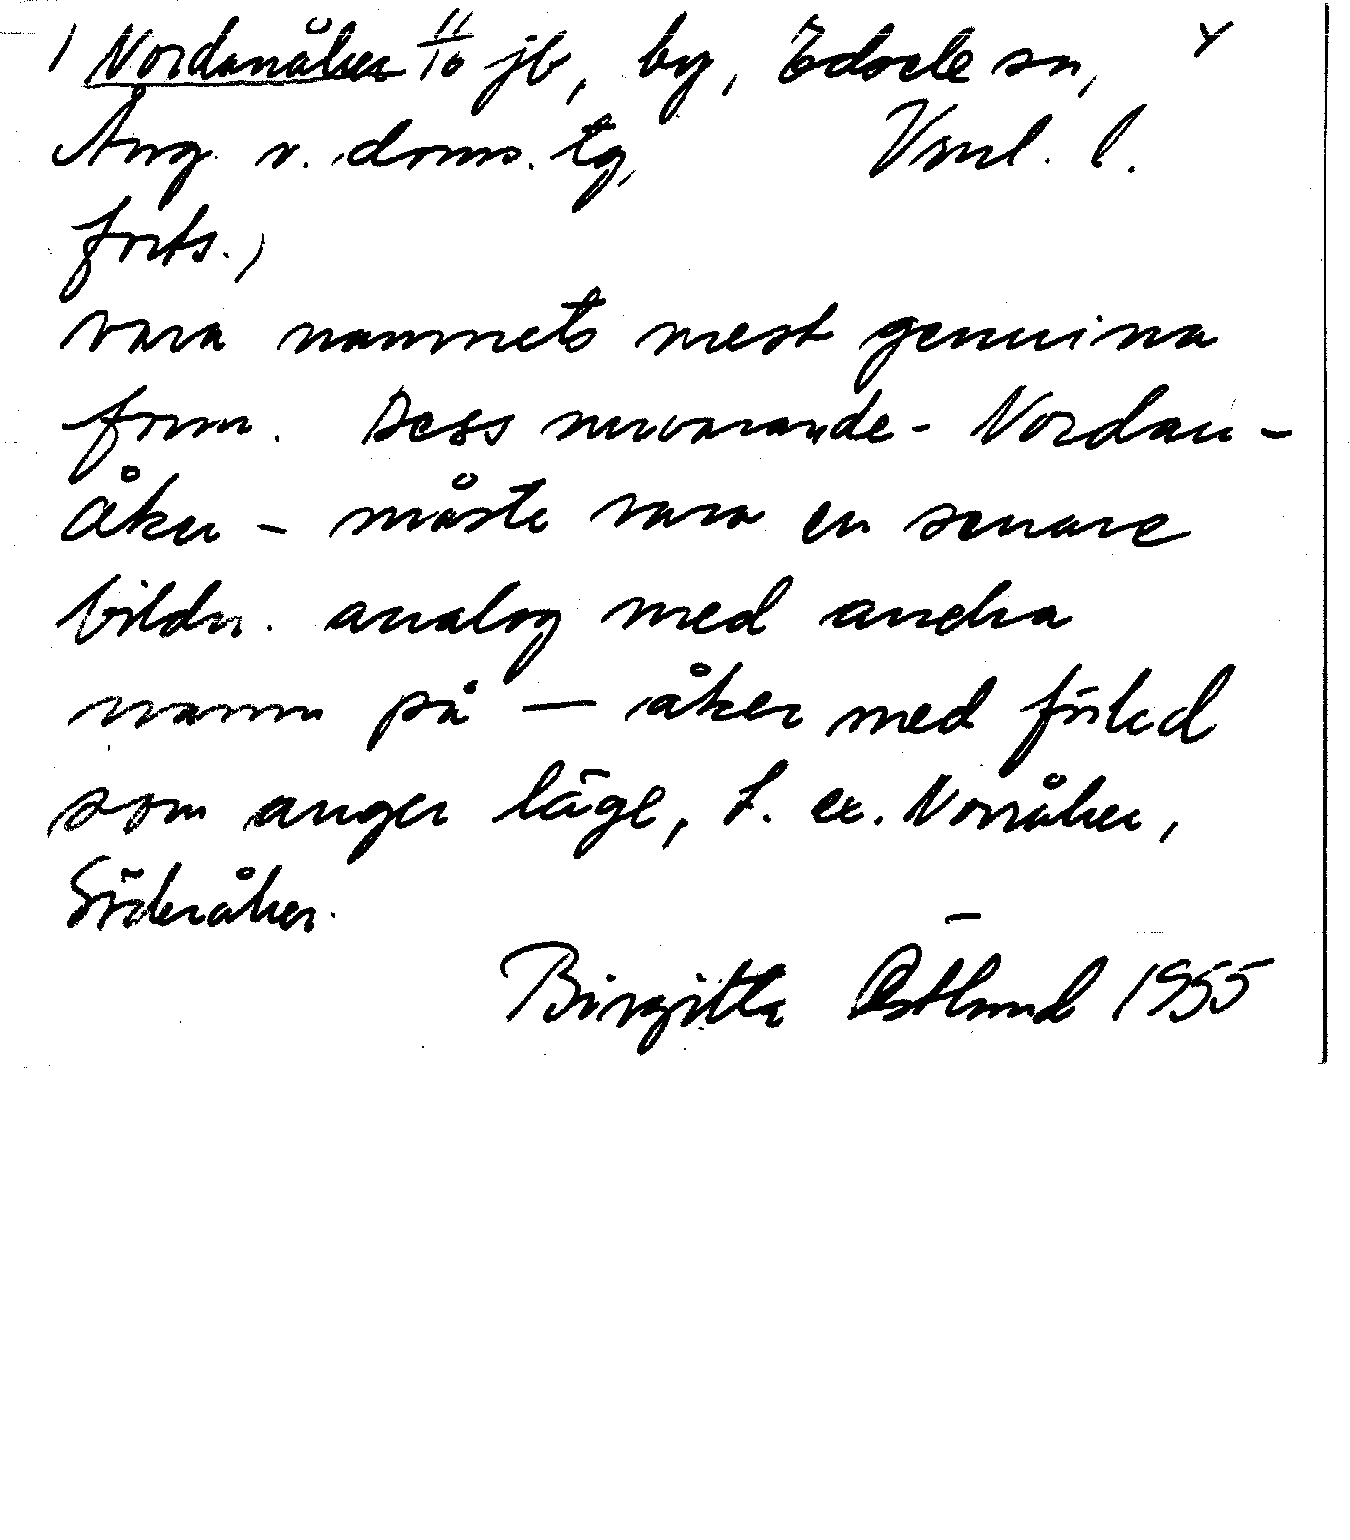 ) Nordanåker 11/10 jb, by, Edsele sn,
Ång. v. doms. tg, Vnl. l.
forts.)
vara namnets mest genuina
form. Dess nuvarande - Nordan-
åker - måste vara en senare
bildn. analog med andra
namn på — åker med förled
som anger läge, t. ex. Norråker,
Söderåker.
Birgitta Östlund 1955